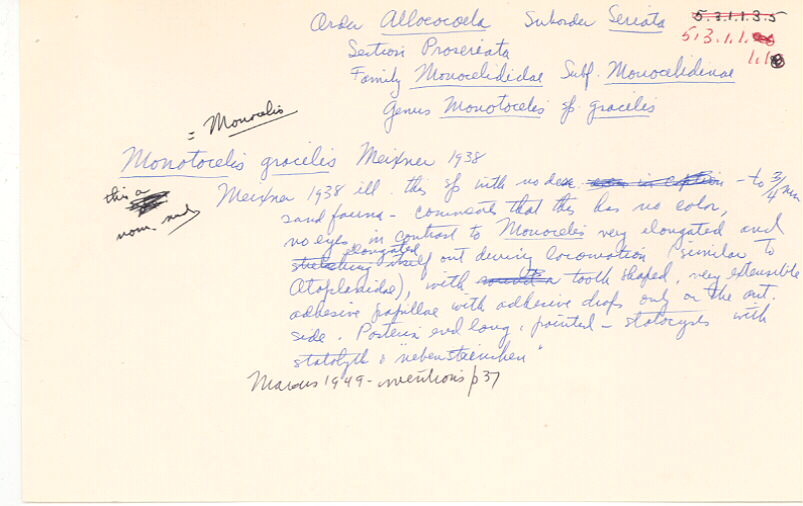 Order Allococoela Suborder Seriata 5.3.1.1.3.5
Section Proseriata 5.3.1.1.
Family Monocelididae Subf. Monocelidinae 1.1.
Genus Monotocelis sp. gracilis
= Monocelis
Monotocelis gracilis Meixner 1938
this a
nom. nud
Meixner 1938 ill. this sp with no des. in caption - to 3/4 mm
sand fauna - comments that this has no color,
no eyes in contrast to Monocelis very elongated and
stretching itself elongated out during locomotion (similar to
Otoplanidae), with tooth shaped, very extensible
adhesive papillae with adhesive drops only on the ant.
side. Posterior end long, pointed - statocysts with
statolyth & "nebensteinchen"
Marcus 1949 - mentions p 37